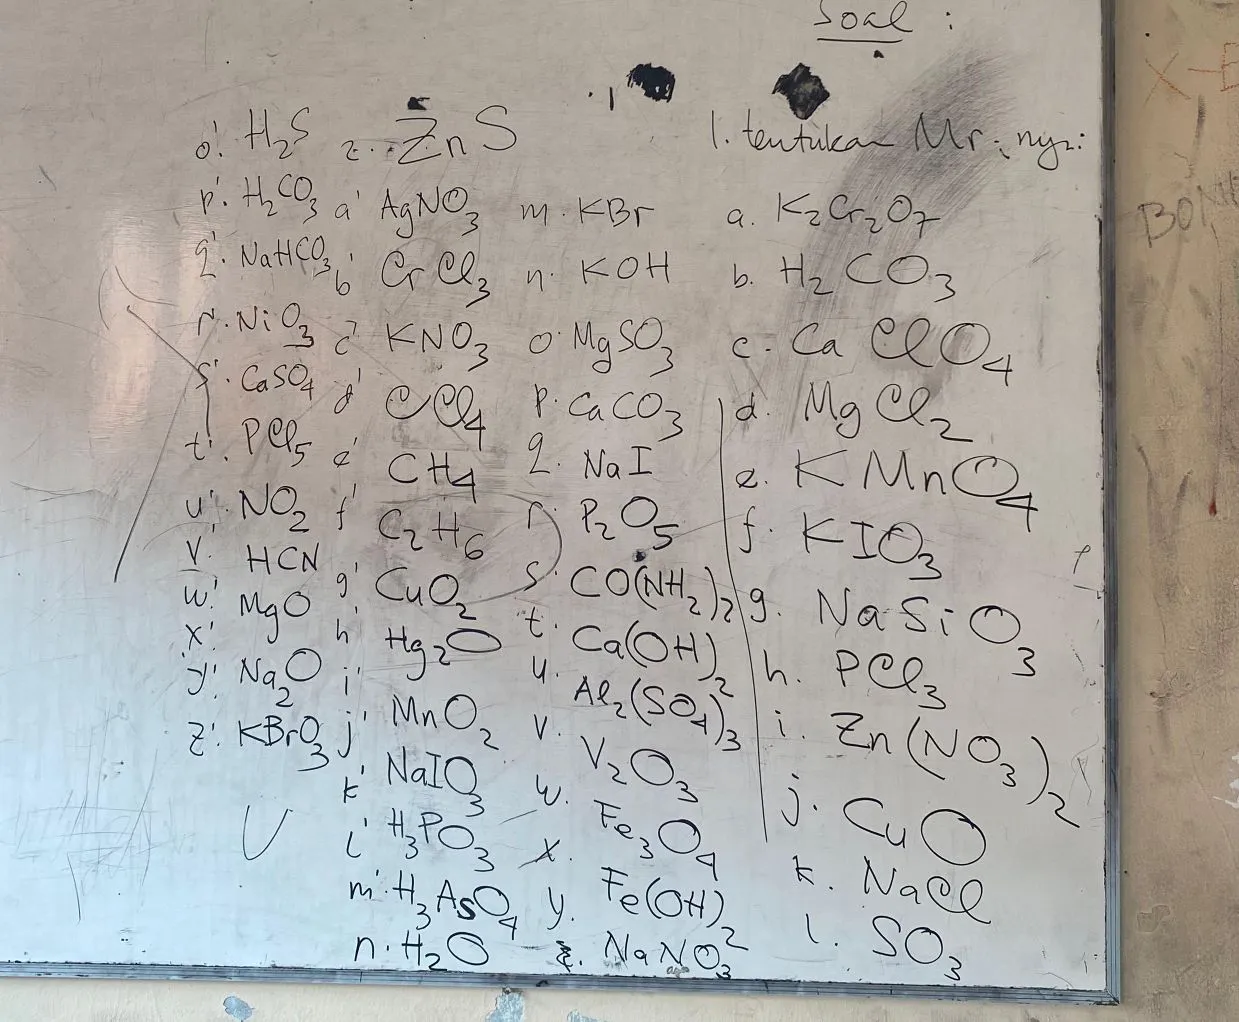 Soal :
1. tentukan Mr. nya:
a. K₂Cr₂O₇
b. H₂CO₃
c. CaClO₄
d. MgCl₂
e. KMnO₄
f. KIO₃
g. NaSiO₃
h. PCl₃
i. Zn(NO₃)₂
j. CuO
k. NaCl
l. SO₃
m. KBr
n. KOH
o. MgSO₃
p. CaCO₃
q. NaI
r. P₂O₅
s. CO(NH₂)₂
t. Ca(OH)₂
u. Al₂(SO₄)₃
v. V₂O₃
w. Fe₃O₄
x. Fe(OH)₂
y. NaNO₃
z. ZnS
a' AgNO₃
b' CrCl₃
c' KNO₃
d' CCl₄
e' CH₄
f' C₂H₆
g' CuO₂
h' Hg₂O
i' MnO₂
j' NaIO₃
k' H₃PO₃
l'
m' H₃AsO₄
n. H₂O
o' H₂S
p' H₂CO₃
q' NaHCO₃
r' NiO₃
s' CaSO₄
t' PCl₅
u' NO₂
v' HCN
w' MgO
x'
y' Na₂O
z' KBrO₃
X-E